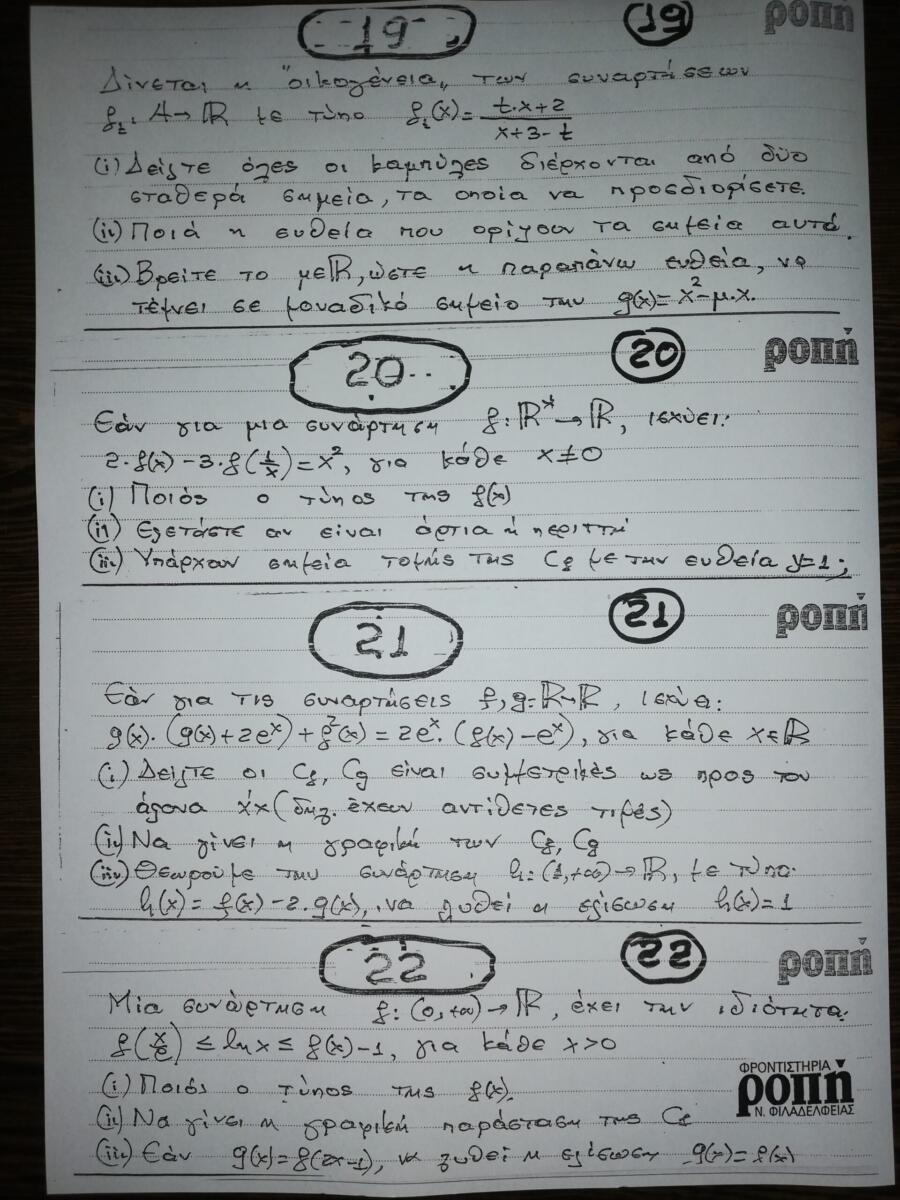 19 19 ροπή
Δίνεται η "οικογένεια„ των συναρτήσεων
f_t: A→ℝ με τύπο f_t(x)= (t·x+2)/(x+3-t)
(i) Δείξτε όλες οι καμπύλες διέρχονται από δύο
σταθερά σημεία, τα οποία να προσδιορίσετε.
(ii) Ποιά η ευθεία που ορίζουν τα σημεία αυτά.
(iii) Βρείτε το μεℝ, ώστε η παραπάνω ευθεία, να
τέμνει σε μοναδικό σημείο την g(x)=x²-μ.x.
20 20 ροπή
Εάν για μια συνάρτηση f: ℝ*→ℝ, ισχύει:
2·f(x)-3·f(1/x)=x², για κάθε x≠0
(i) Ποιός ο τύπος της f(x)
(ii) Εξετάστε αν είναι άρτια ή περιττή
(iii) Υπάρχουν σημεία τομής της Cf με την ευθεία y=1;
21 21 ροπή
Εάν για τις συναρτήσεις f,g:ℝ→ℝ, ισχύει:
g(x)·(g(x)+2eˣ)+f²(x)=2eˣ·(f(x)-eˣ), για κάθε xεℝ
(i) Δείξτε οι Cf, Cg είναι συμμετρικές ως προς τον
άξονα x'x (δηλ. έχουν αντίθετες τιμές)
(ii) Να γίνει η γραφική των Cf, Cg
(iii) Θεωρούμε την συνάρτηση h:(1,+∞)→ℝ, με τύπο:
h(x)=f(x)-2.g(x), να λυθεί η εξίσωση h(x)=1
22 22 ροπή
Μία συνάρτηση f:(0,+∞)→ℝ, έχει την ιδιότητα:
f(x/e) ≤ lnx ≤ f(x)-1, για κάθε x>0
(i) Ποιός ο τύπος της f(x).
(ii) Να γίνει η γραφική παράσταση της Cf
(iii) Εάν g(x)=f(2x-1), να λυθεί η εξίσωση g(x)=f(x)
ΦΡΟΝΤΙΣΤΗΡΙΑ
ροπή
Ν. ΦΙΛΑΔΕΛΦΕΙΑΣ